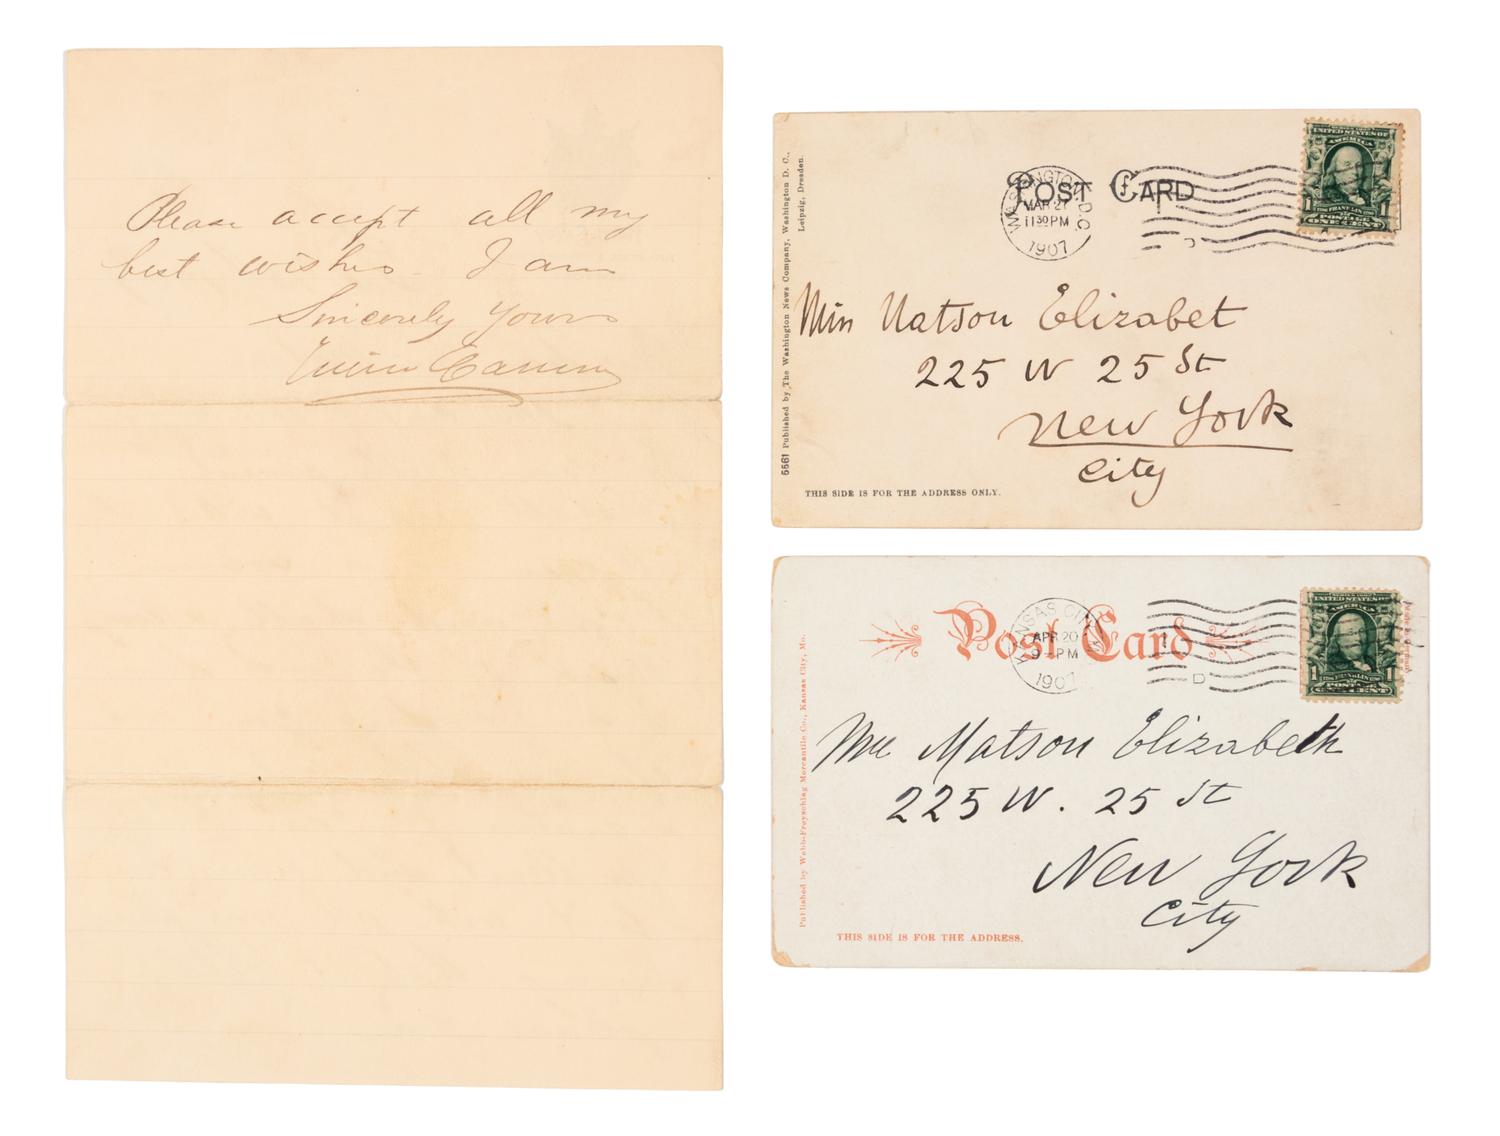 Please accept all my
best wishes. I am
Sincerely Yours
5561 Published by The Washington News Company, Washington D. C.,
Leipzig, Dresden.
POST CARD
WASHINGTON, D.C.
MAR 27
11 30 PM
1907
D
SERIES 1902
UNITED STATES OF
AMERICA
1 FRANKLIN 1
POSTAGE
ONE CENT
Miss Matson Elizabet
225 W 25 St
New York
City
THIS SIDE IS FOR THE ADDRESS ONLY.
Published by Webb-Freyschlag Mercantile Co., Kansas City, Mo.
Post Card
KANSAS CITY
APR 20
9 - PM
1907
D
SERIES 1902
UNITED STATES OF
AMERICA
1 FRANKLIN 1
POSTAGE
ONE CENT
Made in Germany
Matson Elizabeth
225 W. 25 St
New York
City
THIS SIDE IS FOR THE ADDRESS.